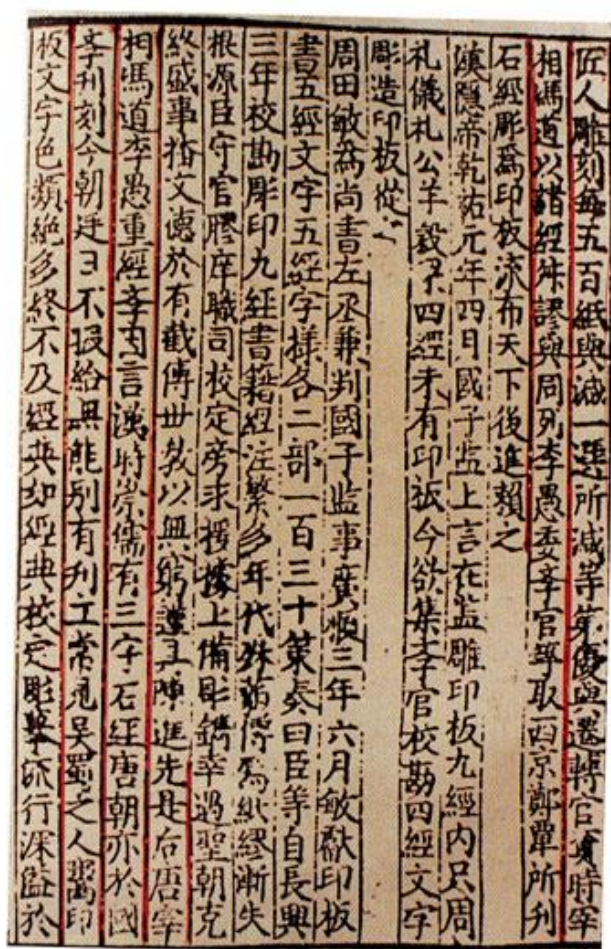 匠人雕刻每五百紙與減一選所減等第優與遷轉官資時宰
相馮道以諸經舛謬與同列李愚委学官等取西京鄭覃所刊
石經雕爲印板流布天下後進賴之
漢隱帝乾祐元年四月國子監上言在監雕印板九經內只周
礼儀礼公羊穀梁四經未有印板今欲集学官校勘四經文字
雕造印板從之
周田敏爲尚書左丞兼判國子監事廣順三年六月敏獻印板
書五經文字五經字樣各二部一百三十策奏曰臣等自長興
三年校勘彫印九經書籍經注繁多年代殊邈傳寫紕繆漸失
根源臣守官膠庠職司校定旁求援據上備彫鐫幸遇聖朝克
終盛事播文德於有截傳世教以無窮謹具陳進先是后唐宰
相馮道李愚重經学因言漢時崇儒有三字石經唐朝亦於國
学刊刻今朝廷日不暇給無能別有刊立常見吳蜀之人鬻印
板文字色類絕多終不及經典如經典校定彫摹流行深益於